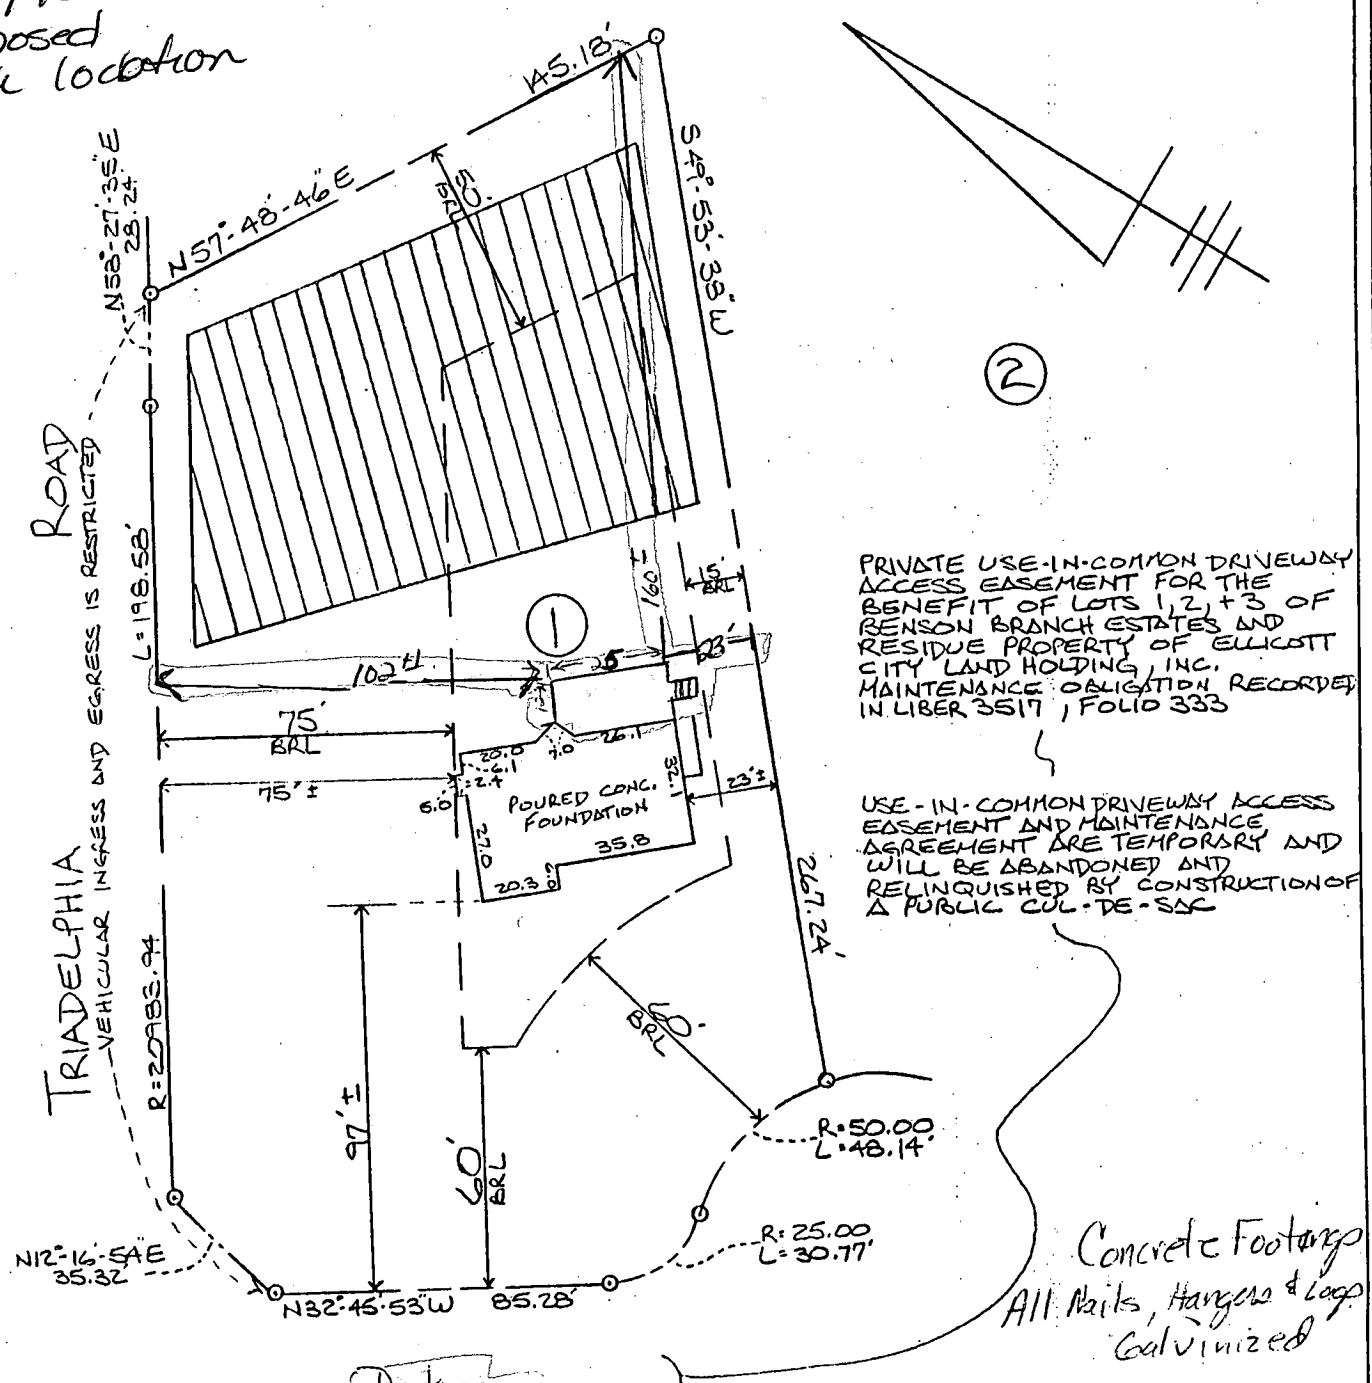 posed
location
145.18'
N57°-48'-46"E
N58°-27'-35"E
28.24'
50'
BRL
S 49°-53'-38"W
2
ROAD
TRIADELPHIA
VEHICULAR INGRESS AND EGRESS IS RESTRICTED
L=198.58'
R=20983.94
1
160'±
15'
BRL
102'±
25
23'
75'
BRL
75'±
20.0
6.1
2.4
6.0
7.0
26.1
32.1
23'±
POURED CONC.
FOUNDATION
27.0
35.8
20.3
267.24'
PRIVATE USE-IN-COMMON DRIVEWAY
ACCESS EASEMENT FOR THE
BENEFIT OF LOTS 1, 2, + 3 OF
BENSON BRANCH ESTATES AND
RESIDUE PROPERTY OF ELLICOTT
CITY LAND HOLDING, INC.
MAINTENANCE OBLIGATION RECORDED
IN LIBER 3517, FOLIO 333
USE-IN-COMMON DRIVEWAY ACCESS
EASEMENT AND MAINTENANCE
AGREEMENT ARE TEMPORARY AND
WILL BE ABANDONED AND
RELINQUISHED BY CONSTRUCTION OF
A PUBLIC CUL-DE-SAC
97'±
60'
BRL
60'
BRL
R=50.00
L=48.14'
R=25.00
L=30.77'
N12°-16'-54"E
35.32'
N32°-45'-53"W 85.28'
Concrete Footings
All Nails, Hangers & Lags
Galvinized